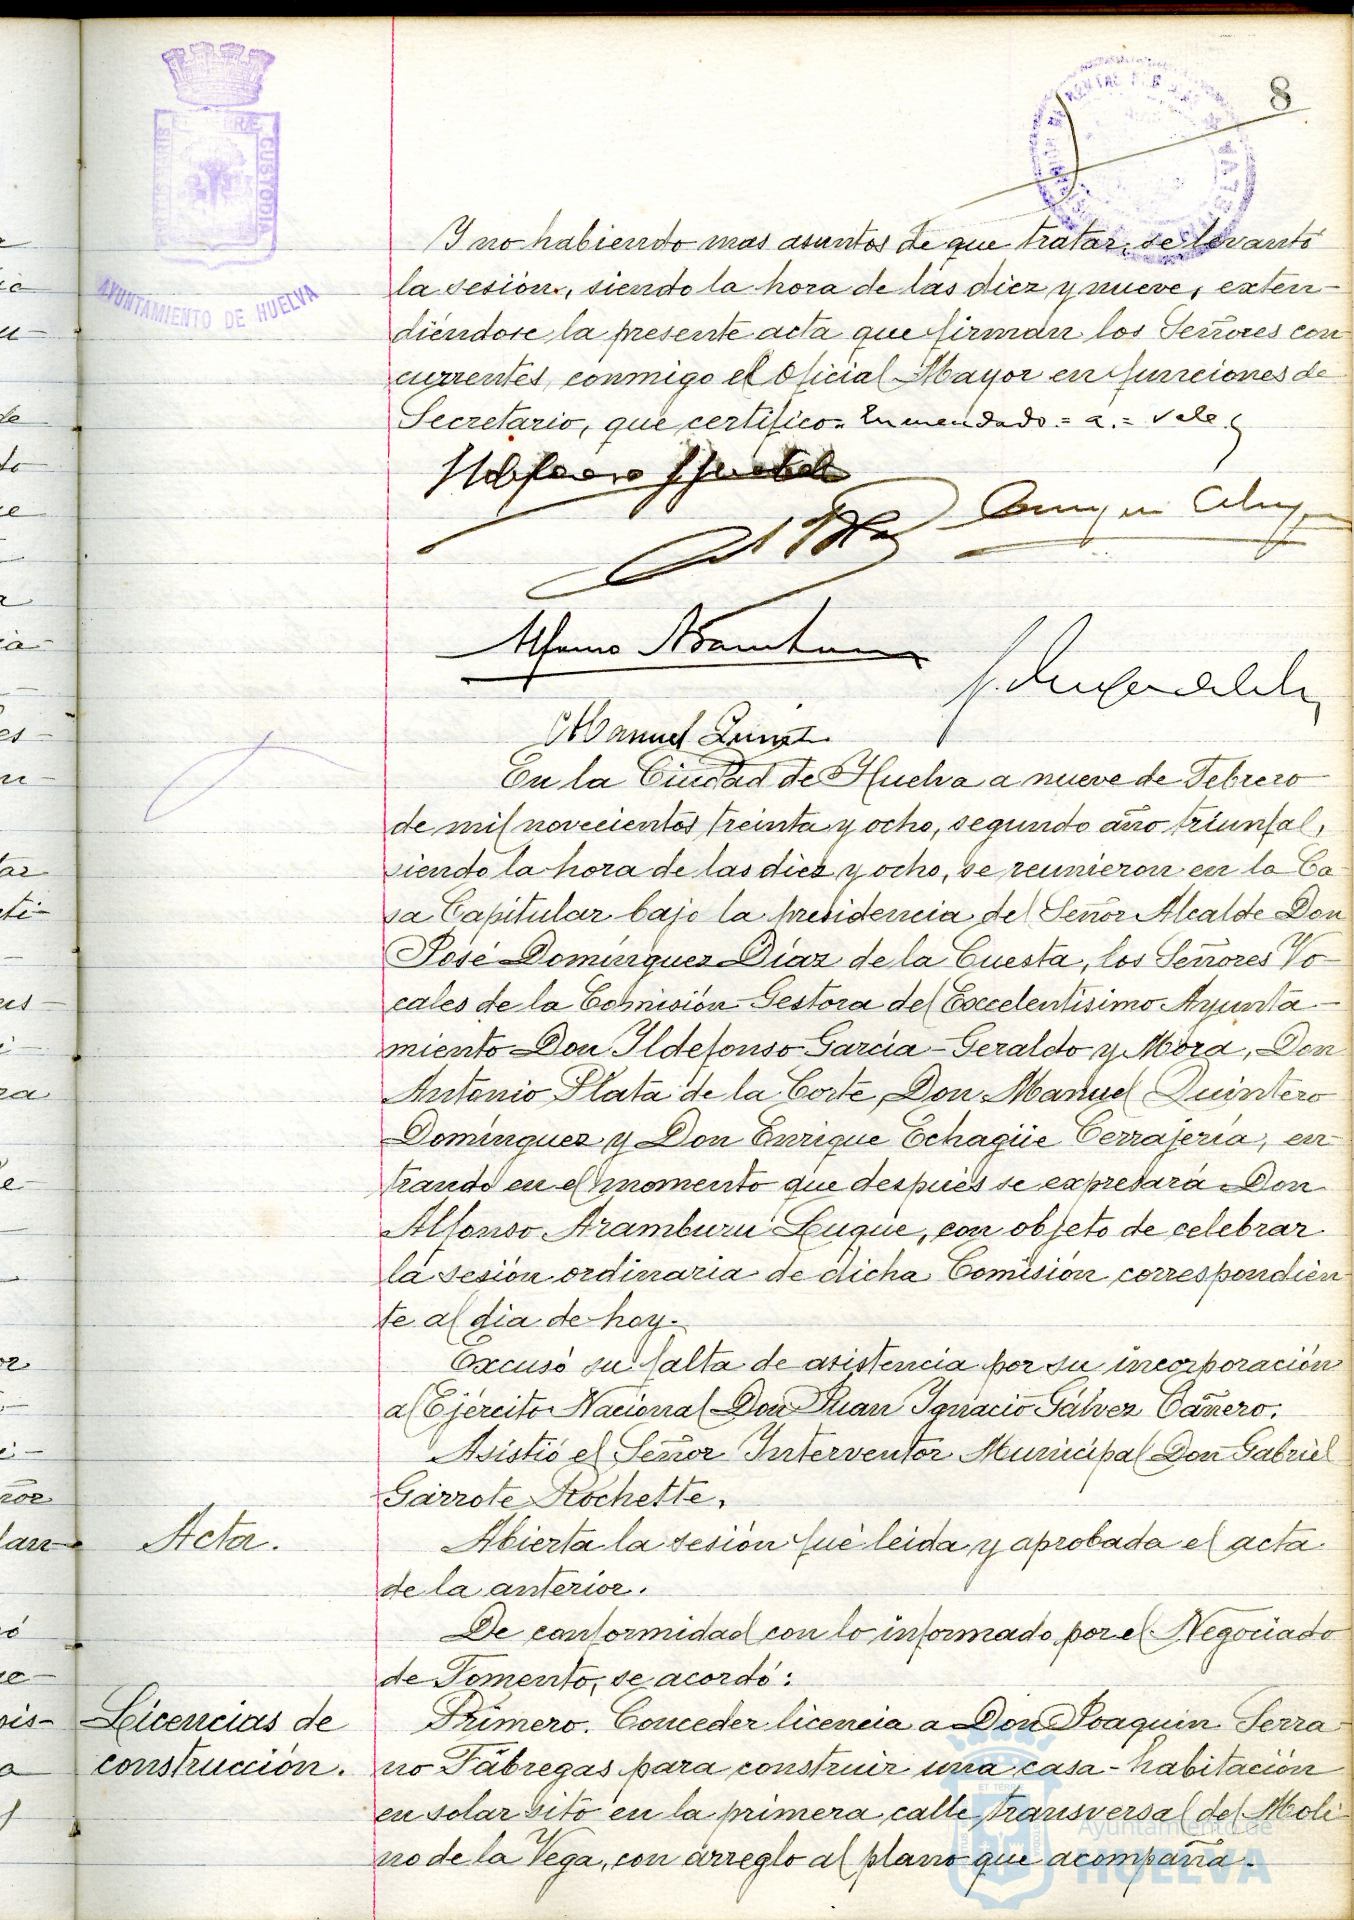 8
PORTUS MARIS ET TERRÆ CUSTODIA
AYUNTAMIENTO DE HUELVA
Y no habiendo mas asuntos de que tratar, se levantó
la sesión, siendo la hora de las diez y nueve, exten-
diéndose la presente acta que firman los Señores con
currentes, conmigo el Oficial Mayor en funciones de
Secretario, que certifico.= Enmendado.= a.= vale.
Ildefonso
Alfonso Aramburu
Manuel Quint.
En la Ciudad de Huelva a nueve de Febrero
de mil novecientos treinta y ocho, segundo año triunfal,
siendo la hora de las diez y ocho, se reunieron en la Ca
sa Capitular bajo la presidencia del Señor Alcalde Don
José Domínguez Díaz de la Cuesta, los Señores Vo-
cales de la Comisión Gestora del Excelentísimo Ayunta-
miento Don Ildefonso García-Geraldo y Mora, Don
Antonio Plata de la Corte, Don Manuel Quintero
Domínguez y Don Enrique Echagüe Cerrajería, en-
trando en el momento que después se expresará Don
Alfonso Aramburu Luque, con objeto de celebrar
la sesión ordinaria de dicha Comisión correspondien
te al dia de hoy.
Excusó su falta de asistencia por su incorporación
al Ejército Nacional Don Juan Ignacio Gálvez Cañero.
Asistió el Señor Interventor Municipal Don Gabriel
Garrote Rochette.
Acta.
Abierta la sesión fué leida y aprobada el acta
de la anterior.
De conformidad con lo informado por el Negociado
de Fomento, se acordó:
Licencias de
construcción.
Primero. Conceder licencia a Don Joaquin Serra
no Fábregas para construir una casa-habitación
en solar sito en la primera calle transversal del Moli
no de la Vega, con arreglo al plano que acompaña.
Ayuntamiento de
HUELVA